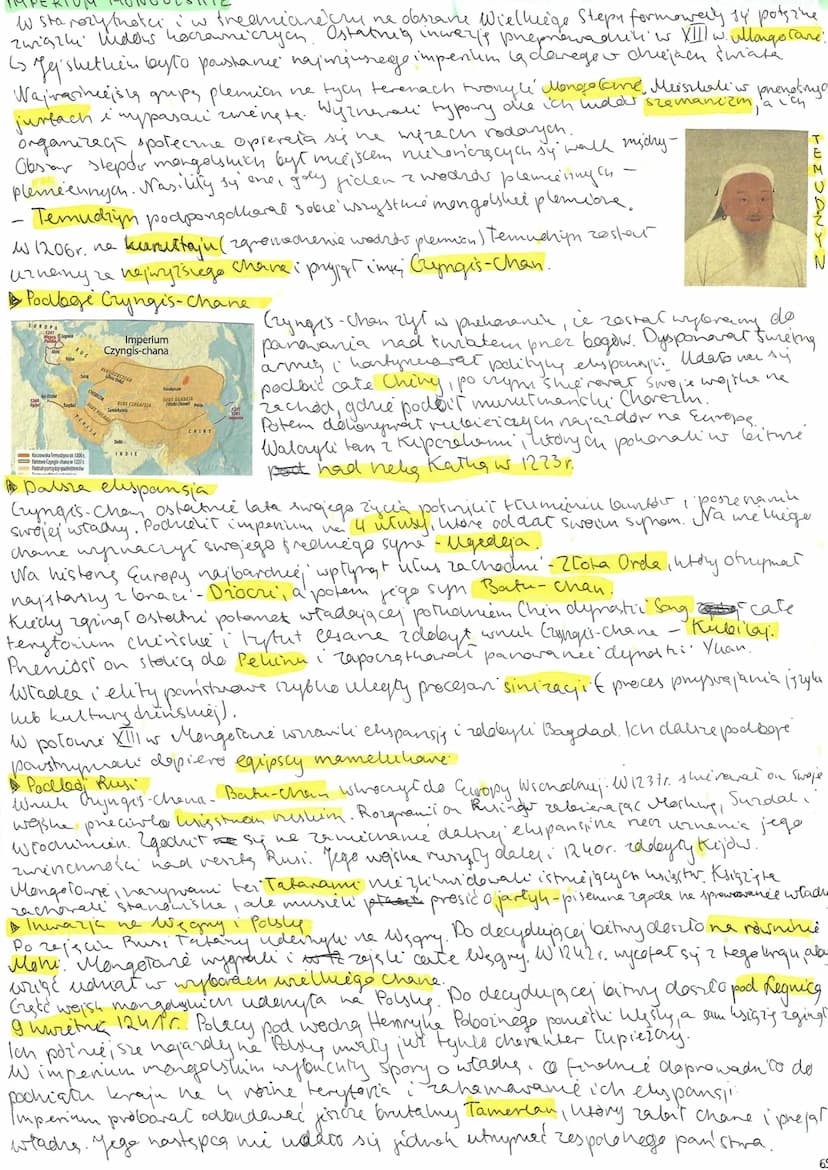 IMPERIUM MONGOLSKIE
W starożytności i w średniowieczu na obszarze Wielkiego Stepu formowały się potężne
związki ludów koczowniczych. Ostatnią inwazję przeprowadzili w XIII w. Mongołowie.
↳ Jej skutkiem było powstanie największego imperium lądowego w dziejach świata
Najważniejszą grupę plemion na tych terenach tworzyli Mongołowie. Mieszkali w przenośnych
jurtach i wypasali zwierzęta. Wyznawali typowy dla ich ludów szamanizm, a ich
organizacja społeczna opierała się na więzach rodowych.
Obszar stepów mongolskich był miejscem niekończących się walk między-
plemiennych. Nasiliły się one, gdy jeden z wodzów plemiennych -
- Temudżyn podporządkował sobie wszystkie mongolskie plemiona.
W 1206r. na kurułtaju (zgromadzenie wodzów plemion) Temudżyn został
uznany za najwyższego chana i przyjął imię Czyngis-Chan.
TEMUDŻYN
▶ Podboje Czyngis-chana
Imperium
Czyngis-chana
EUROPA
RUŚ
PERSJA
INDIE
CHINY
Czyngis-chan żył w przekonaniu, że został wybrany do
panowania nad światem przez bogów. Dysponował świetną
armią i kontynuował politykę ekspansji. Udało mu się
podbić całe Chiny, po czym skierował swoje wojska na
zachód, gdzie podbił muzułmański Chorezm.
Potem dokonywał rubieżnych najazdów na Europę.
Walczyli tam z Kipczakami, których pokonali w bitwie
nad rzeką Kałką w 1223r.
▶ Dalsza ekspansja
Czyngis-chan ostatnie lata swojego życia poświęcił tłumieniu buntów i poszerzaniu
swojej władzy. Podzielił imperium na 4 ułusy, które oddał swoim synom. Na wielkiego
chana wyznaczył swojego średniego syna - Ugedeja.
Na historię Europy najbardziej wpłynął ułus zachodni - Złota Orda, który otrzymał
najstarszy z braci - Dżoczi, a potem jego syn Batu-chan.
Kiedy zginął ostatni potomek władającej południem Chin dynastii Song całe
terytorium chińskie i tytuł cesarza zdobył wnuk Czyngis-chana - Kubilaj.
Przeniósł on stolicę do Pekinu i zapoczątkował panowanie dynastii Yuan.
Władca i elity państwowe szybko uległy procesowi sinizacji (proces przyswajania języka
lub kultury chińskiej).
W połowie XIII w Mongołowie wznowili ekspansję i zdobyli Bagdad. Ich dalsze podboje
powstrzymali dopiero egipscy mamelukowie
▶ Podboj Rusi
Wnuk Czyngis-chana - Batu-chan wkroczył do Europy Wschodniej. W 1237r. skierował on swoje
wojska przeciwko księstwom ruskim. Rozgromił on Rusinów zabierając Moskwę, Suzdal i
Włodzimierz. Zgodził się na zaniechanie dalszej ekspansji na rzecz uznania jego
zwierzchności nad resztą Rusi. Jego wojska ruszyły dalej i 1240r. zdobyły Kijów.
Mongołowie, nazywani też Tatarami nie zlikwidowali istniejących księstw. Książęta
zachowali stanowiska, ale musieli prosić o jarłyk - pisemna zgoda na sprawowanie władzy
▶ Inwazja na Węgry i Polskę
Po zajęciu Rusi Tatarzy uderzyli na Węgry. Do decydującej bitwy doszło na równinie
Mohi. Mongołowie wygrali i zajęli całe Węgry. W 1242r. wycofał się z tego kraju aby
wziąć udział w wyborach wielkiego chana.
Część wojsk mongolskich uderzyła na Polskę. Do decydującej bitwy doszło pod Legnicą
9 kwietnia 1241r. Polacy pod wodzą Henryka Pobożnego ponieśli klęskę, a sam książę zginął.
Ich późniejsze najazdy na Polskę miały już tylko charakter łupieżczy.
W imperium mongolskim wybuchły spory o władzę, co finalnie doprowadziło do
podziału kraju na 4 różne terytoria i zahamowanie ich ekspansji.
Imperium próbował odbudować jeszcze brutalny Tamerlan, który zabił chana i przejął
władzę. Jego następcą nie udało się jednak utrzymać zespolonego państwa.